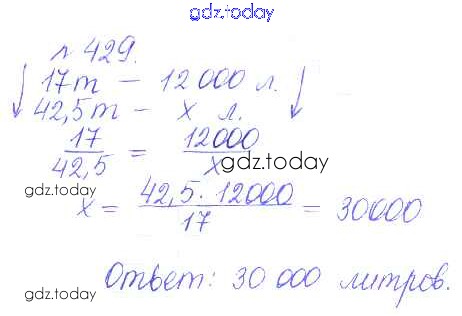 gdz.today
№ 429.
17т — 12 000 л.
42,5т — х л.
17/42,5 = 12000/х
gdz.today
gdz.today
х = 42,5 · 12000/17 = 30000
gdz.today
Ответ: 30 000 литров.
gdz.today